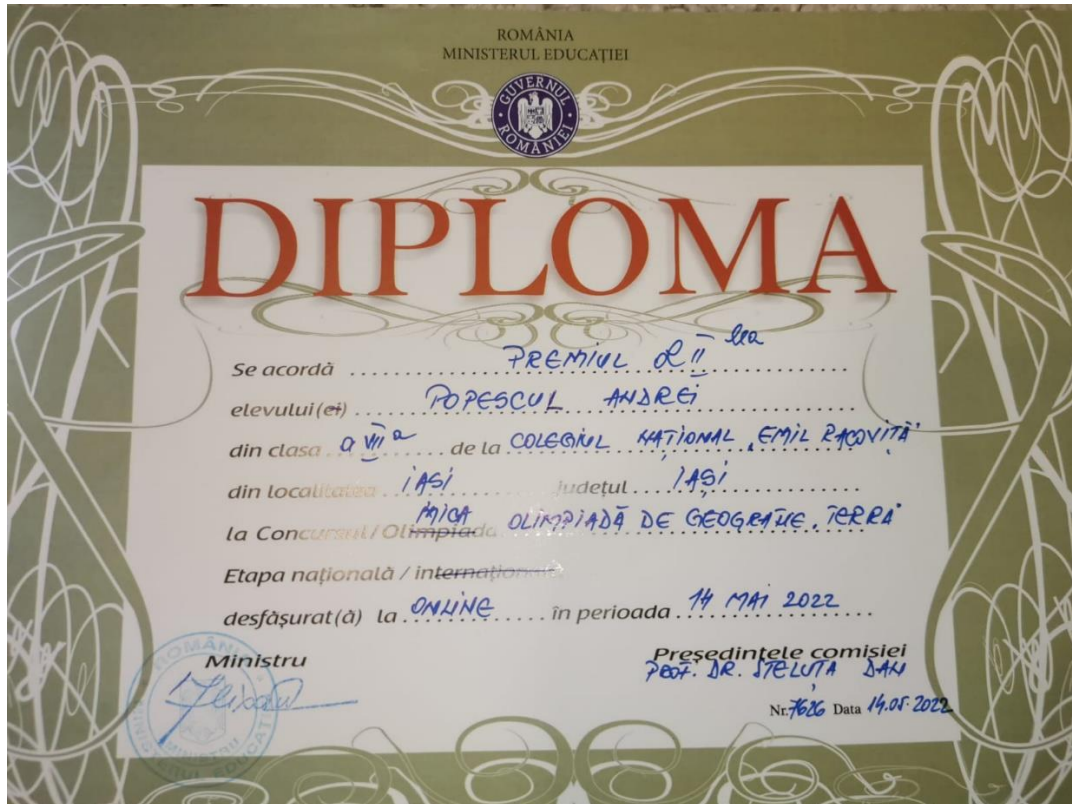 ROMÂNIA
MINISTERUL EDUCAȚIEI
GUVERNUL ROMÂNIEI
DIPLOMA
Se acordă ........ PREMIUL al II lea ........
elevului(ei) ........ POPESCUL ANDREI ........
din clasa a VII a de la COLEGIUL NAȚIONAL „EMIL RACOVIȚĂ"
din localitatea IASI județul IAȘI
la Concursul / Olimpiada MICA OLIMPIADĂ DE GEOGRAFIE „TERRA"
Etapa națională / internațională
desfășurat(ă) la ONLINE în perioada 14 MAI 2022
Ministru
Președintele comisiei
PROF. DR. STELUȚA DAN
Nr. 7626 Data 14.05.2022
ROMÂNIA
MINISTERUL EDUCAȚIEI
MINISTRU